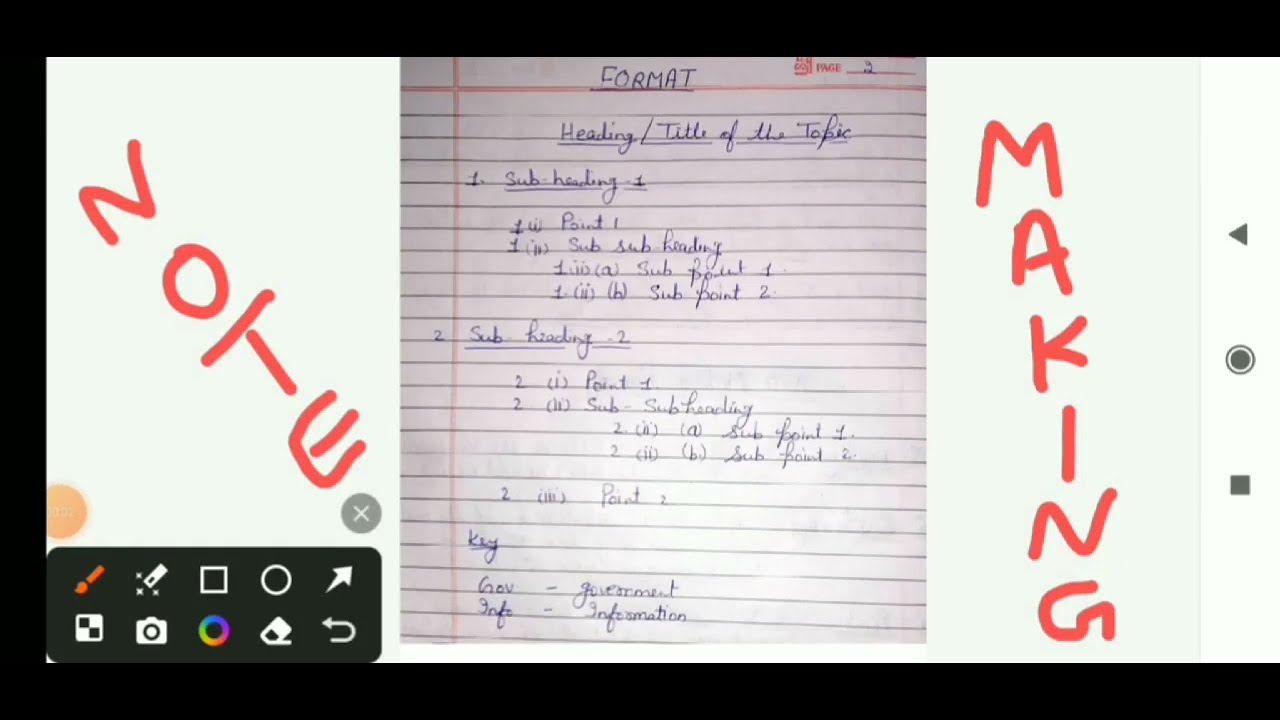 NOTE
MAKING
PAGE 2
FORMAT
Heading/Title of the Topic
1. Sub-heading-1
1(i) Point 1
1(ii) Sub sub heading
1(ii)(a) Sub point 1.
1.(ii) (b) Sub point 2.
2 Sub-heading-2
2 (i) Point 1.
2 (ii) Sub-Subheading
2.(ii) (a) Sub point 1.
2 (ii) (b) Sub point 2.
2 (iii) Point 2
Key
Gov - government
Info - Information